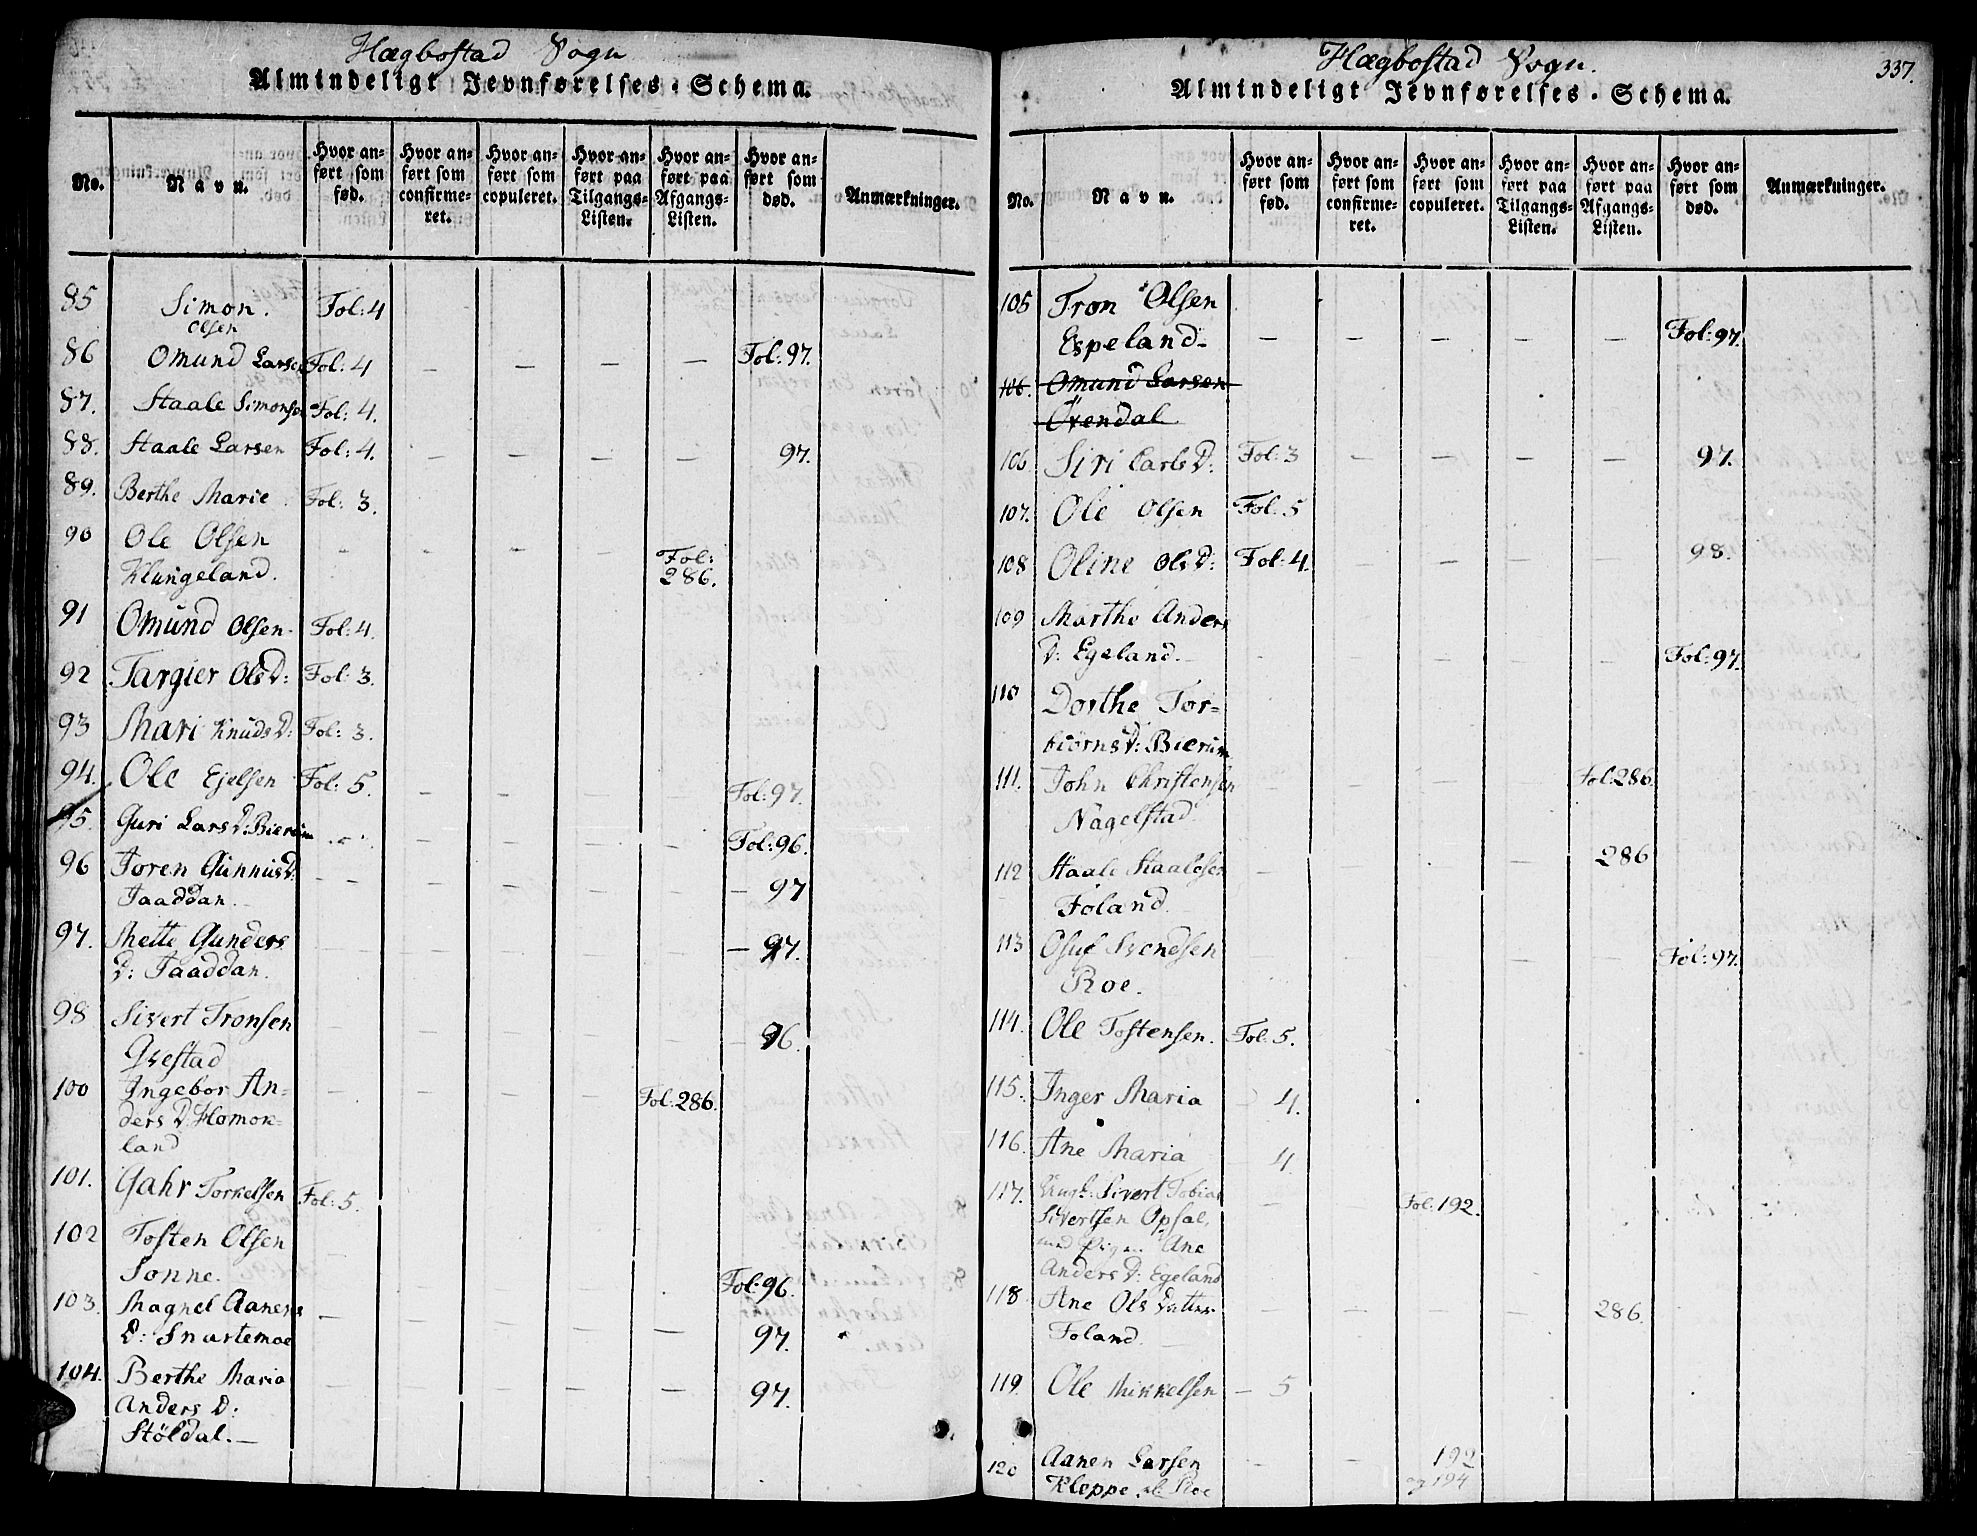 Hægbostad Sogn
Almindeligt Jevnførelses-Schema.
No.
Navn.
Hvor an-
ført som
fød.
Hvor an-
ført som
confirme-
ret.
Hvor an-
ført som
copuleret.
Hvor an-
ført paa
Tilgangs-
Listen.
Hvor an-
ført paa
Afgangs-
Listen.
Hvor an-
ført som
død.
Anmærkninger.
85 Simon. Fol: 4
Olsen
86 Omund Larsen Fol: 4 — — — — Fol: 97.
87. Staale Simonsen Fol: 4.
88. Staale Larsen Fol: 4. — — — — 97.
89. Berthe Marie. Fol: 3.
90 Ole Olsen — — — — Fol:
Klungeland. 286.
91 Omund Olsen. Fol: 4.
92 Targier OlsD: Fol: 3.
93 Mari KnudsD: Fol: 3.
94. Ole Ejelsen Fol: 5. — — — — Fol: 97.
95. Guri LarsD: Bierum — Fol: 96.
96 Joren GunnusD: — — — — — — 97
Jaaddan.
97. Mette Gunders — — — — — — 97.
D: Jaaddan.
98 Sivert Tronsen — — — — — 96.
Qvestad
100 Ingebor An- — — — — Fol: 286.
ders D. Homok-
land
101. Gahr Torkelsen Fol: 5.
102 Tosten Olsen — — — — —
Sonne. Fol: 96.
103. Magnel Aanens — — — — — 97.
D: Snartemoe
104. Berthe Maria — — — — — 97.
Anders D:
Stöldal.—
Hægbostad Sogn.
337.
Almindeligt Jevnførelses-Schema.
No.
Navn.
Hvor an-
ført som
fød.
Hvor an-
ført som
confirme-
ret.
Hvor an-
ført som
copuleret.
Hvor an-
ført paa
Tilgangs-
Listen.
Hvor an-
ført paa
Afgangs-
Listen.
Hvor an-
ført som
død.
Anmærkninger.
105 Tron Olsen
Espeland. — — — — — Fol: 97.
106. Omund Larsen
Övendal
106 Siri CarlsD: Fol: 3 — — — — 97.
107. Ole Olsen Fol: 5
108 Oline OlsD: Fol: 4. — — — — 98.
109 Marthe Anders
D: Egeland. — — — — — Fol: 97.
110 Dorthe Tor-
biörnsD: Bierum
111. John Christensen — — — — Fol: 286.
Nagelstad.
112 Staale Staalesen — — — — 286
Foland.
113 Osuf Svendsen — — — — — Fol: 97.
Roe.
114. Ole Tostensen. Fol: 5.
115. Inger Maria — 4.
116. Ane Maria — 4.
117. Ungk: Sivert Tobias — — Fol: 192.
Sivertsen Opsal,
med Pigen Ane
Anders D: Egeland
118 Ane Ols Datter — — — — 286.
Foland.
119. Ole Mikkelsen — 5
120 Aanen Larsen — — 192
Kleppe og 194